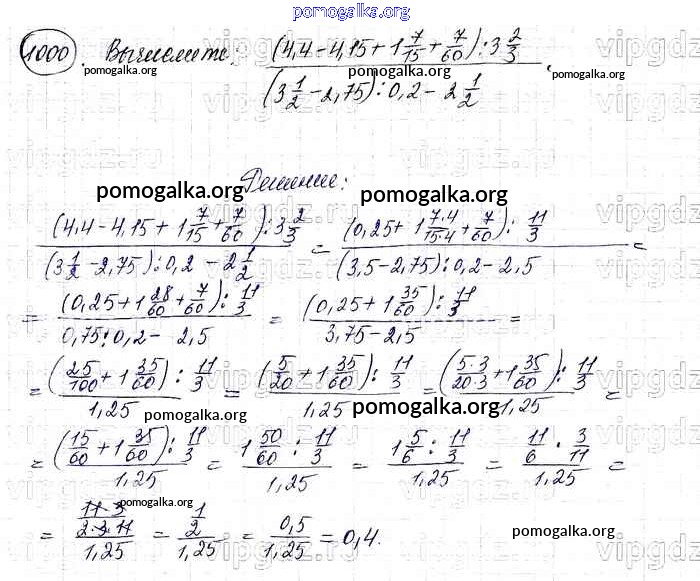 pomogalka.org
1000. Вычислить: (4,4 - 4,15 + 1 7/15 + 7/60) : 3 2/3 / (3 1/2 - 2,75) : 0,2 - 2 1/2 .
pomogalka.org pomogalka.org pomogalka.org
Решение:
pomogalka.org pomogalka.org
(4,4 - 4,15 + 1 7/15 + 7/60) : 3 2/3 / (3 1/2 - 2,75) : 0,2 - 2 1/2 = (0,25 + 1 7·4/15·4 + 7/60) : 11/3 / (3,5 - 2,75) : 0,2 - 2,5 =
= (0,25 + 1 28/60 + 7/60) : 11/3 / 0,75 : 0,2 - 2,5 = (0,25 + 1 35/60) : 11/3 / 3,75 - 2,5 =
= (25/100 + 1 35/60) : 11/3 / 1,25 = (5/20 + 1 35/60) : 11/3 / 1,25 = (5·3/20·3 + 1 35/60) : 11/3 / 1,25 =
pomogalka.org pomogalka.org
= (15/60 + 1 35/60) : 11/3 / 1,25 = 1 50/60 : 11/3 / 1,25 = 1 5/6 : 11/3 / 1,25 = 11/6 · 3/11 / 1,25 =
pomogalka.org
= 11·3/2·3·11 / 1,25 = 1/2 / 1,25 = 0,5/1,25 = 0,4.
pomogalka.org pomogalka.org